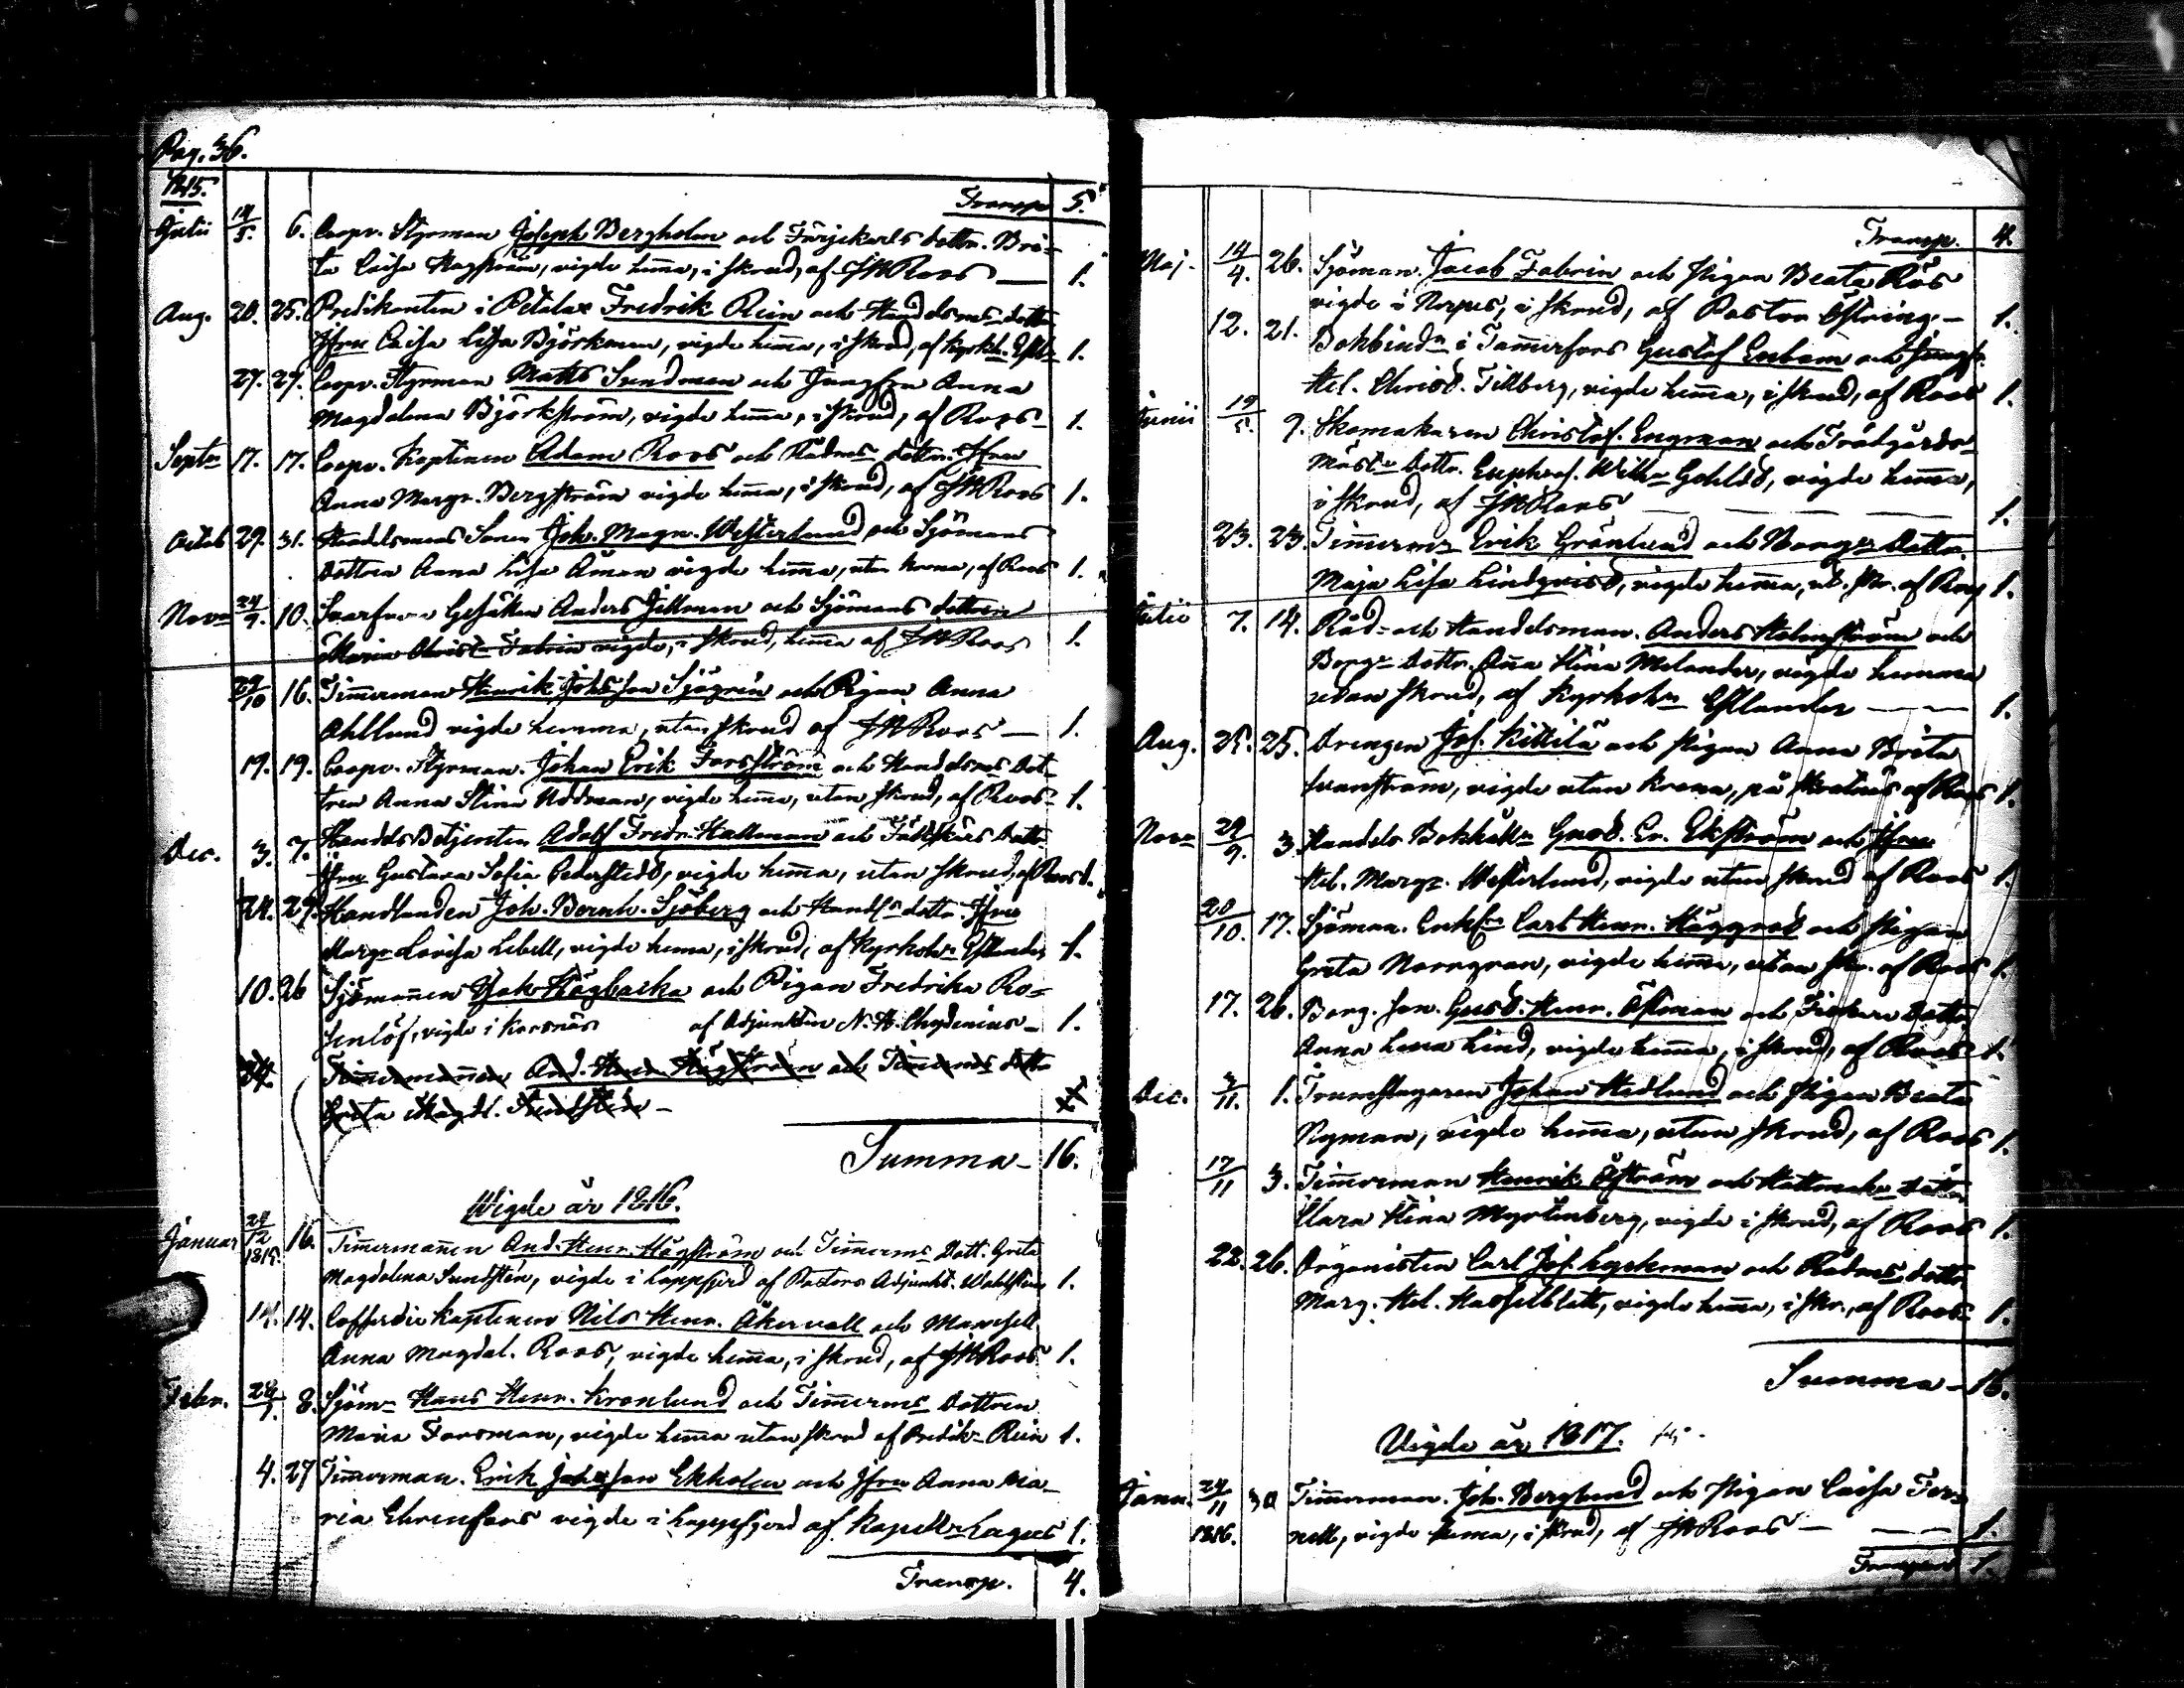 Pag. 36.
1815.
Transp. 5.
Julii 14/5. 6. Coopv. Styrman Joseph Bergholm och Färjekarls dottr. Bri-
ta Caisa Hagström, vigde hema, i skrud, af JHRoos — 1.
Aug. 20. 25. Predikanten i Petalax Fredrik Rein och Handelsms dottr
Jfru Caisa Lisa Björkman, vigde hema, i skrud, af Kyrkoh. Estl- 1.
27. 27. Coopv. Styrman Matts Sundman och Jungfru Anna
Magdalena Björkström, vigde hema, i skrud, af Roos- 1.
Septr 17. 17. Coopv. Kaptenen Adam Roos och Rådms dottr. Jfru
Anna Margr. Bergström vigde hema, i skrud, af JHRoos 1.
Octob 29. 31. Handelsmans Sonen Joh. Magn. Westerlund och Sjömans
dottren Anna Lisa Åman vigde hema, utan krona, af Roos 1.
Novr 24/9. 10. Svarfvare Gesällen Anders Jellman och Sjömans dottren
Maria Christ. Fabrin vigde, i skrud, hema af JHRoos 1.
29/10 16. Timerman Henrik Johsson Sjögren och Pigan Anna
Ahllund vigde hemma, utan skrud af JHRoos — 1.
19. 19. Coopv. Styrman. Johan Erik Forsström och Handelsms Dot-
tren Anna Stina Nodman, vigde hema, utan skrud, af Roos- 1.
Dec. 3. 7. HandelsBetjenten Adolf Fredr. Hallman och Fältskärs Dottr
Jfru Gustava Sofia Cederstedt, vigde hema, utan skrud, af Roos 1.
24. 29. Handlanden Joh. Bernh. Sjöberg och Handls dottr. Jfru
Margr Lovisa Lebell, vigde hema, i skrud, af Kyrkoh. Estlander 1.
10. 26 Sjömannen Jak Högbacka och Pigan Fredrika Ro-
senlöf, vigde i Korsnäs af Adjunkten N. H. Chydenius- 1.
24. Timermannen And. Henr. Högström och Timerms dottr
Greta Magdl. Sundsten -
Summa- 16.
Wigde år 1816.
Januar 24/12 1815. 16. Timermanen And. Henr. Högström och Timerms Dott. Greta
Magdalena Sundstén, vigde i Lappfjerd af Pastors Adjunkt. Wahlstein 1.
14. 14. Cofferdie Kaptenen Nils Henr. Åkervall och Mamsell
Anna Magdal. Roos, vigde hema, i skrud, af JHRoos 1.
Febr. 28/1. 8. Sjöm- Hans Henr. Kronlund och Timerms Dottren
Maria Forsman, vigde hema utan skrud af Predik- Rein 1.
4. 27 Timerman. Erik Johsson Ekholm och Jfru Anna Ma-
ria Ehrenfors vigde i Lappfjerd af Kapell- Lagus 1.
Transp. 4.
Transp. 4.
Maj. 14/4. 26. Sjöman. Jacob Fabrin och Pigan Beata Rös
vigde i Nerpes, i skrud, af Pastor Östring. — 1.
12. 21. Bokbindn i Tamerfors Gustaf Enbom och Jungfr.
Hel. Christ. Tillberg, vigde hema, i skrud, af Roos 1.
Junii 19/5. 9. Skomakaren Christof. Engman och Trädgårds-
mäst. Dottr. Euphros. Wilh- Gohldt, vigde hema,
i skrud, af JHRoos — — — 1.
23. 23. Timerms Erik Grönlund och Borgs Dottr.
Maja Lisa Lindqvist, vigde hema, ut. skr. af Roos 1.
Julii 7. 14. Råd- och Handelsman. Anders Holmström och
Borgs Dottr. Aña Stina Melander, vigde hemma
utan skrud, af Kyrkohn Estlander — 1.
Aug. 25. 25. Drengen Jos. Kittilä och Pigan Anna Brita
Svanström, vigde utan krona, på Skatnäs af Roos 1.
Novr 29/9. 3. Handels Bokhålln Gust. Er. Ekström och Jfru
Hel. Margr. Westerlund, vigde utan skrud af Roos 1.
20/10. 17. Sjöman. Enkln Carl Henr. Häggrot och Pigan
Greta Norrgran, vigde hema, utan skr. af Roos 1.
17. 26. Borg. Son. Gust. Henr. Östman och Fiskare Dottr
Anna Lena Lind, vigde hema, i skrud, af Roos 1.
Dec. 3/11. 1. Trumslagaren Johan Hedlund och Pigan Beata
Nyman, vigde hema, utan skrud, af Roos 1.
17/11 3. Timerman Henrik Öström och Hattmak. Dottr
Clara Stina Myrtenberg, vigde i skrud, af Roos 1.
22. 26. Organisten Carl Jos. Lyckman och Rådms dottr
Marg. Hel. Hasselblatt, vigde hema, i skr., af Roos- 1.
Summa- 16.
Vigde år 1817.
Janu. 24/11 1816. 30 Timerman. Joh. Berglund och Pigan Caisa Fors-
nell, vigde hema, i skrud, af JHRoos — — 1.
Transport 1.